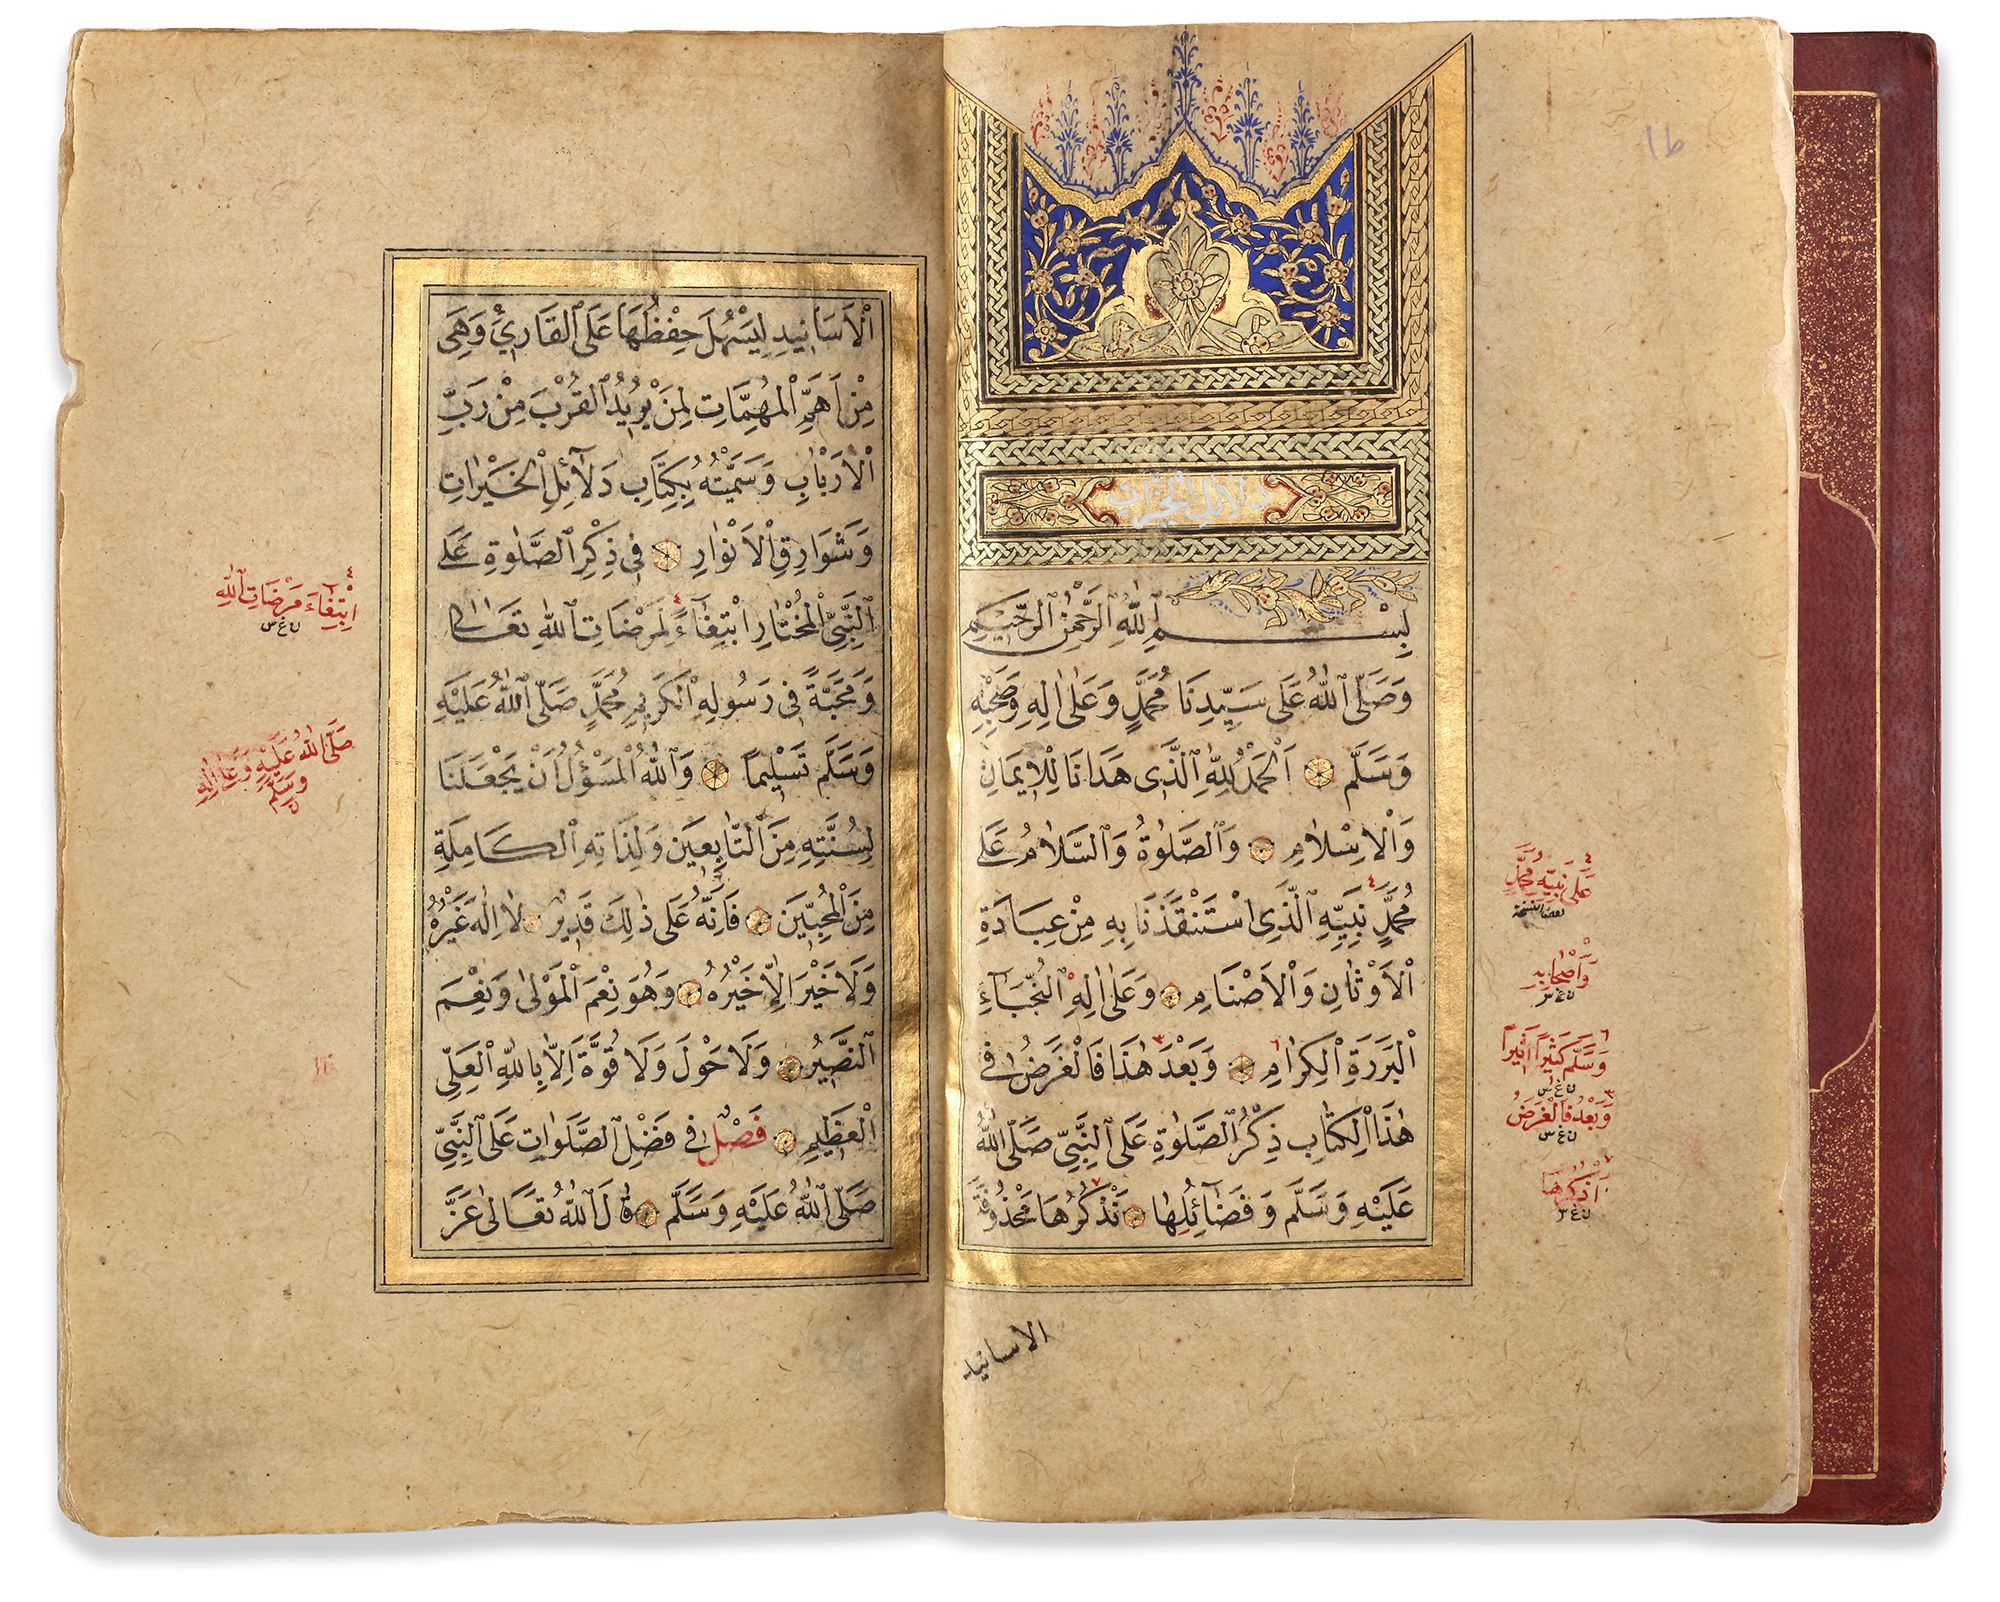 دلائل الخيرات
بِسْمِ ٱللّٰهِ ٱلرَّحْمٰنِ ٱلرَّحٖيمِ
وَصَلَّى ٱللّٰهُ عَلٰى سَيِّدِنَا مُحَمَّدٍ وَعَلٰى اٰلِهٖ وَصَحْبِهٖ
وَسَلَّمَ اَلْحَمْدُ لِلّٰهِ ٱلَّذٖى هَدَانَا لِلْاٖيمَانِ
وَٱلْاِسْلَامِ وَٱلصَّلٰوةُ وَٱلسَّلَامُ عَلٰى
مُحَمَّدٍ نَبِيِّهِ ٱلَّذِى ٱسْتَنْقَذَنَا بِهٖ مِنْ عِبَادَةِ
ٱلْاَوْثَانِ وَٱلْاَصْنَامِ وَعَلٰى اٰلِهِ ٱلنُّجَبَآءِ
ٱلْبَرَرَةِ ٱلْكِرَامِ وَبَعْدَ هٰذَا فَالْغَرَضُ فٖى
هٰذَا ٱلْكِتَابِ ذِكْرُ ٱلصَّلٰوةِ عَلَى ٱلنَّبِيِّ صَلَّى ٱللّٰهُ
عَلَيْهِ وَسَلَّمَ وَفَضَآئِلُهَا نَذْكُرُهَا مَحْذُوفَةَ
الاسانيد
عَلٰى نَبِيِّهٖ مُحَمَّدٍ
وَاَصْحَابِهٖ
ن غ س
وَسَلَّمَ كَثٖيرًا اَثٖيرًا
ن غ س
وَبَعْدُ فَالْغَرَضُ
ن غ س
اَذْكُرُهَا
ن غ س
ٱلْاَسَانٖيدِ لِيَسْهُلَ حِفْظُهَا عَلَى ٱلْقَارِئِ وَهِىَ
مِنْ اَهَمِّ ٱلْمُهِمَّاتِ لِمَنْ يُرٖيدُ ٱلْقُرْبَ مِنْ رَبِّ
ٱلْاَرْبَابِ وَسَمَّيْتُهُ بِكِتَابِ دَلَآئِلِ ٱلْخَيْرَاتِ
وَشَوَارِقِ ٱلْاَنْوَارِ فٖى ذِكْرِ ٱلصَّلٰوةِ عَلَى
ٱلنَّبِيِّ ٱلْمُخْتَارِ ٱبْتِغَآءً لِمَرْضَاتِ ٱللّٰهِ تَعَالٰى
وَمَحَبَّةً فٖى رَسُولِهِ ٱلْكَرٖيمِ مُحَمَّدٍ صَلَّى ٱللّٰهُ عَلَيْهِ
وَسَلَّمَ تَسْلٖيمًا وَٱللّٰهُ ٱلْمَسْؤُلُ اَنْ يَجْعَلَنَا
لِسُنَّتِهٖ مِنَ ٱلتَّابِعٖينَ وَلِذَاتِهِ ٱلْكَامِلَةِ
مِنَ ٱلْمُحِبّٖينَ فَاِنَّهُ عَلٰى ذٰلِكَ قَدٖيرٌ لَا اِلٰهَ غَيْرُهُ
وَلَا خَيْرَ اِلَّا خَيْرُهُ وَهُوَ نِعْمَ ٱلْمَوْلٰى وَنِعْمَ
ٱلنَّصٖيرُ وَلَا حَوْلَ وَلَا قُوَّةَ اِلَّا بِاللّٰهِ ٱلْعَلِىِّ
ٱلْعَظٖيمِ فَصْلٌ فٖى فَضْلِ ٱلصَّلَوَاتِ عَلَى ٱلنَّبِيِّ
صَلَّى ٱللّٰهُ عَلَيْهِ وَسَلَّمَ قَالَ ٱللّٰهُ تَعَالٰى عَزَّ
اِبْتِغَآءَ مَرْضَاتِ ٱللّٰهِ
ن غ س
صَلَّى ٱللّٰهُ عَلَيْهِ وَعَلٰى اٰلِهٖ
وَسَلَّمَ